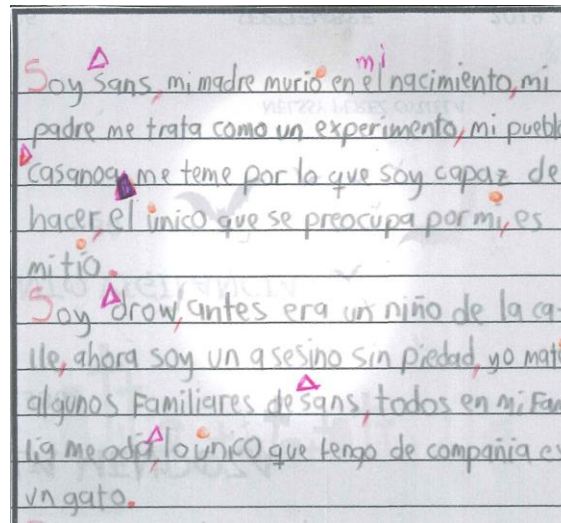 mi
Soy sans, mi madre murio en el nacimiento, mi
padre me trata como un experimento, mi pueblo
casanoa me teme por lo que soy capaz de
hacer, el único que se preocupa por mi, es
mi tío.
Soy drow, antes era un niño de la ca-
lle, ahora soy un asesino sin piedad, yo mate
algunos Familiares de sans, todos en mi Fam
lia me odia, lo único que tengo de compañia es
un gato.